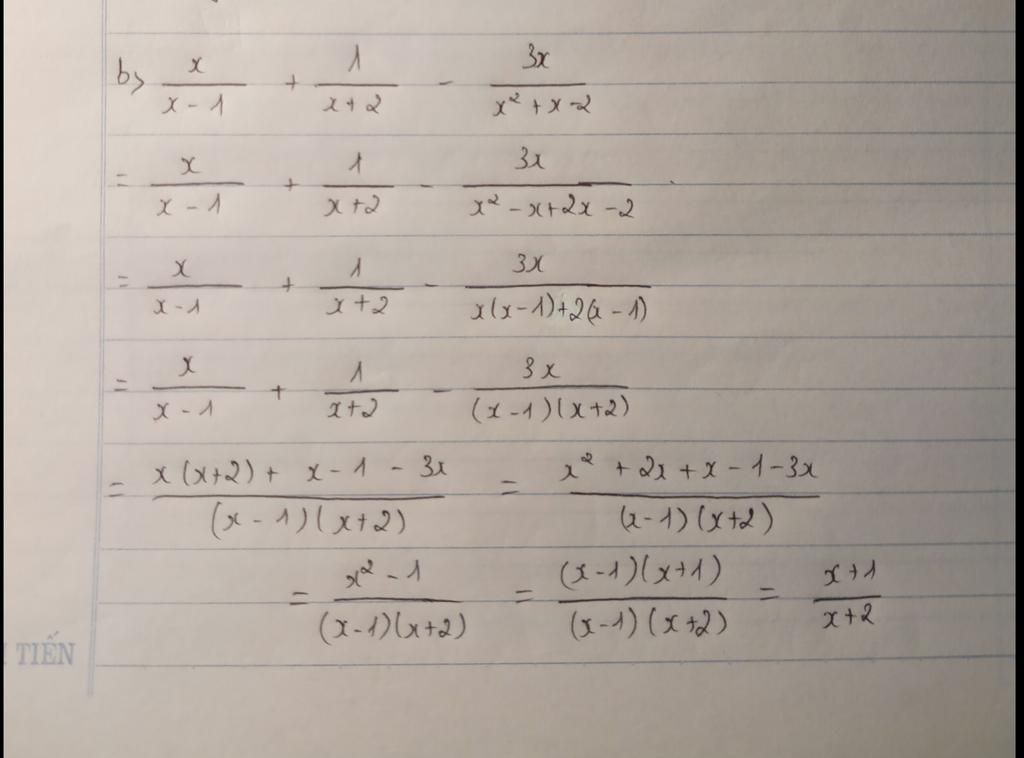 b> x/(x - 1) + 1/(x + 2) - 3x/(x² + x - 2)
= x/(x - 1) + 1/(x + 2) - 3x/(x² - x + 2x - 2)
= x/(x - 1) + 1/(x + 2) - 3x/(x(x - 1) + 2(x - 1))
= x/(x - 1) + 1/(x + 2) - 3x/((x - 1)(x + 2))
= (x(x + 2) + x - 1 - 3x)/((x - 1)(x + 2)) = (x² + 2x + x - 1 - 3x)/((x - 1)(x + 2))
= (x² - 1)/((x - 1)(x + 2)) = ((x - 1)(x + 1))/((x - 1)(x + 2)) = (x + 1)/(x + 2)
TIẾN